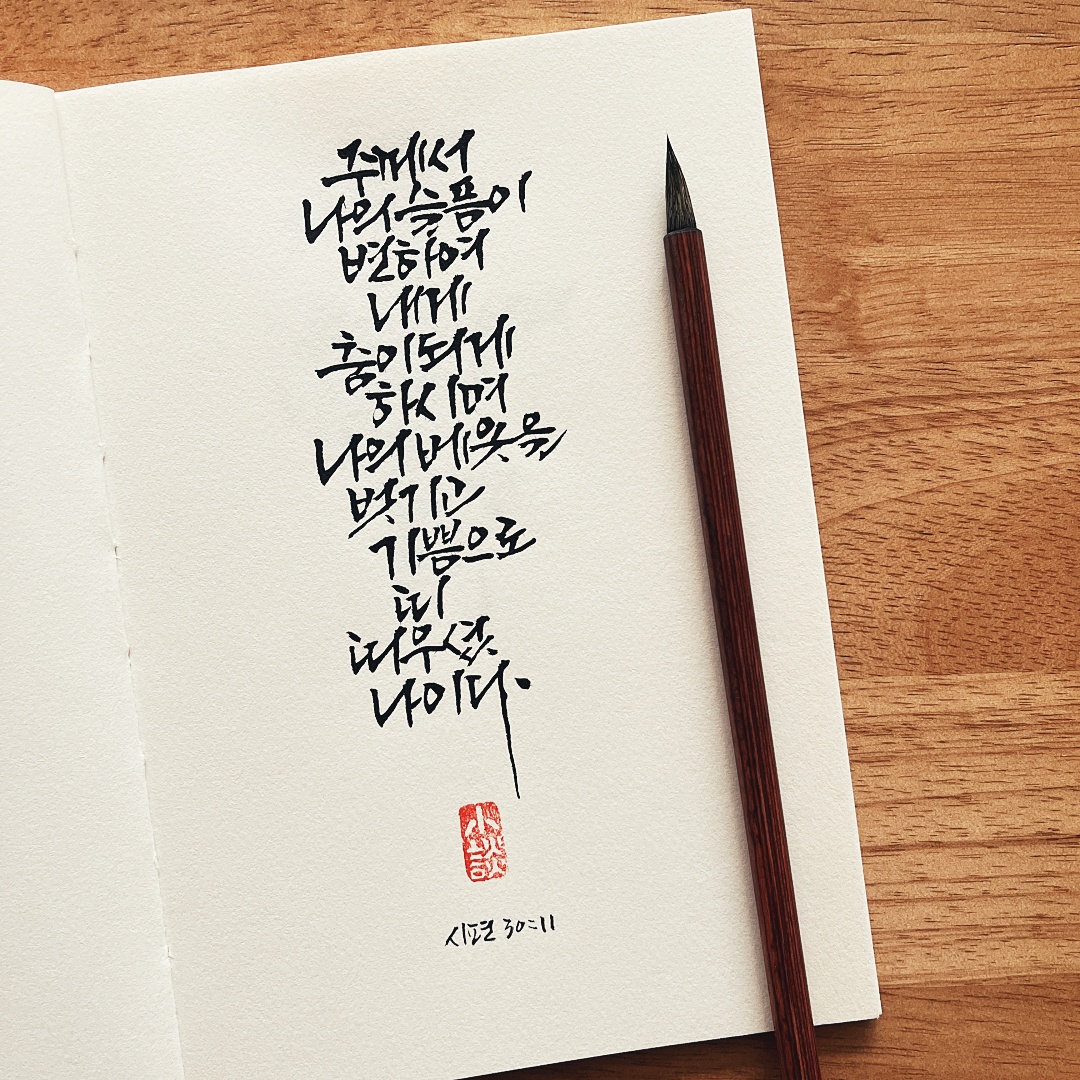 주께서
나의 슬픔이
변하여
내게
춤이 되게
하시며
나의 베옷을
벗기고
기쁨으로
띠
띠우셨
나이다.
小談
시편 30:11